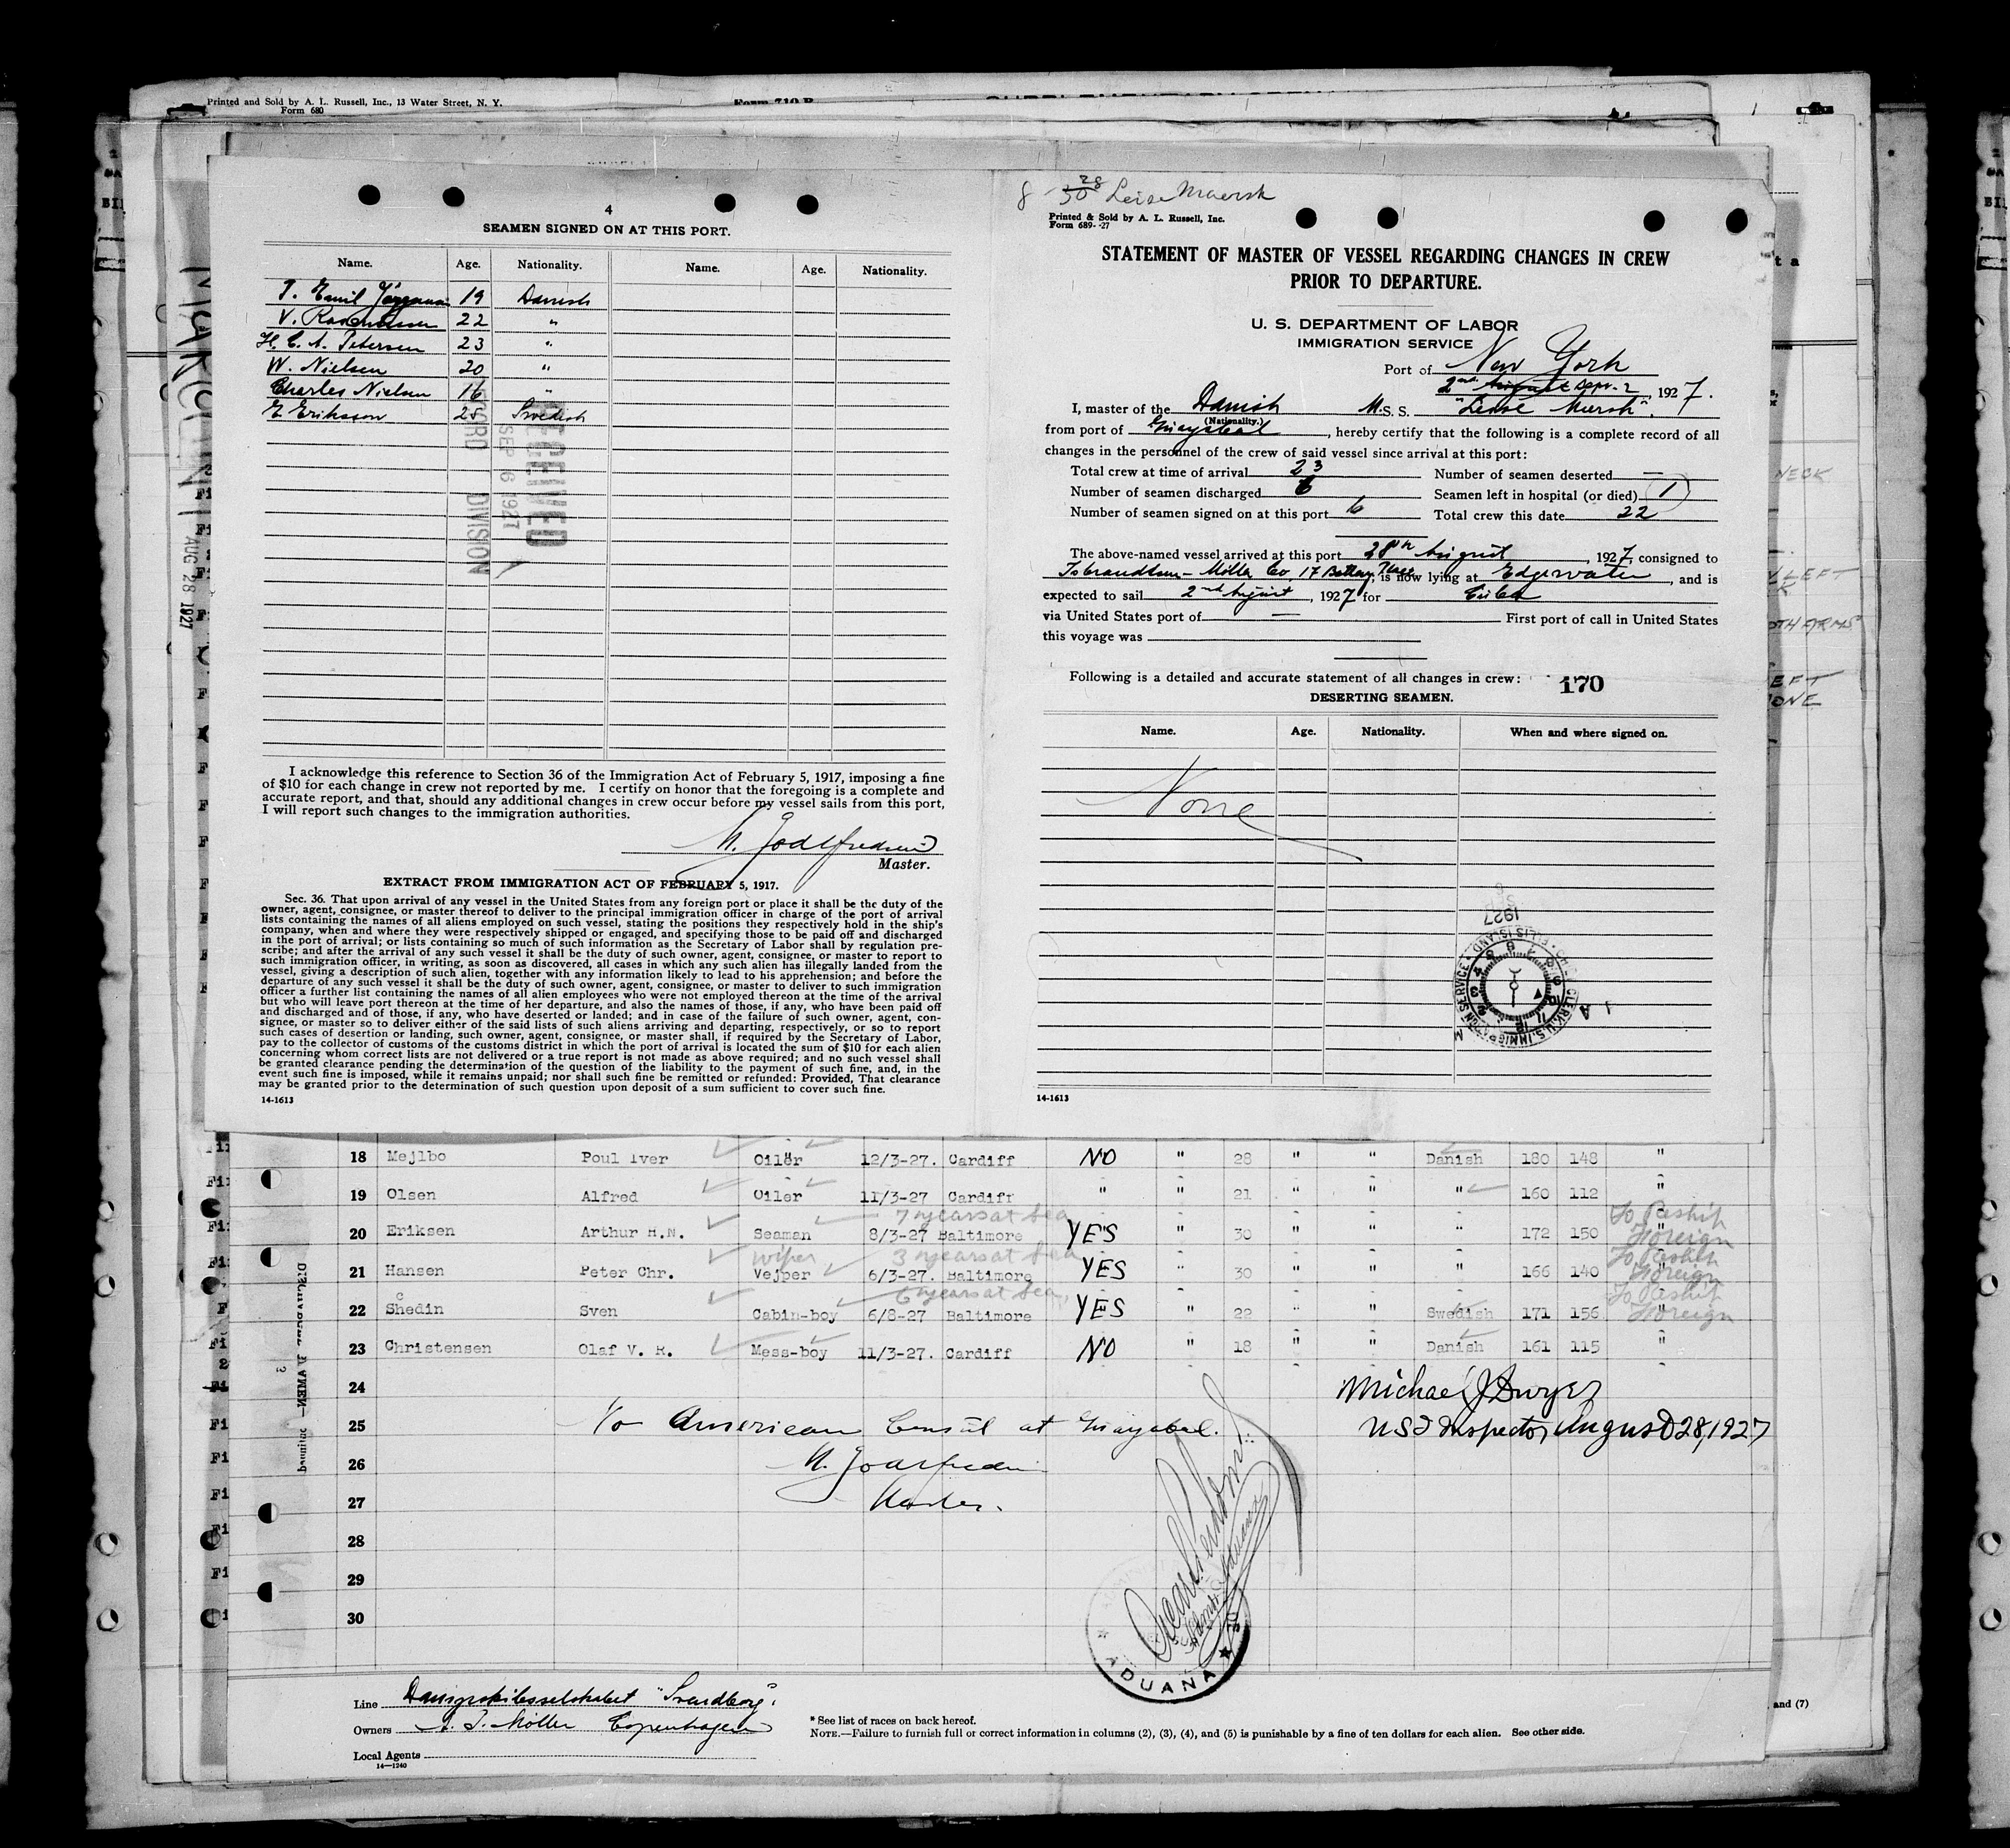 Printed and Sold by A. L. Russell, Inc., 13 Water Street, N. Y.
Form 680
Form 710 B
4
SEAMEN SIGNED ON AT THIS PORT.
Name. Age. Nationality. Name. Age. Nationality.
Emil 19 Danish
V. Rasmussen 22 "
H. C. A. Petersen 23 "
W. Nielsen 20 "
Charles Nielsen 16 "
E. Eriksson 25 Swedish
RECEIVED
SEP 6 1927
RECORD DIVISION
AUG 28 1927
I acknowledge this reference to Section 36 of the Immigration Act of February 5, 1917, imposing a fine
of $10 for each change in crew not reported by me. I certify on honor that the foregoing is a complete and
accurate report, and that, should any additional changes in crew occur before my vessel sails from this port,
I will report such changes to the immigration authorities.
Master.
EXTRACT FROM IMMIGRATION ACT OF FEBRUARY 5, 1917.
Sec. 36. That upon arrival of any vessel in the United States from any foreign port or place it shall be the duty of the
owner, agent, consignee, or master thereof to deliver to the principal immigration officer in charge of the port of arrival
lists containing the names of all aliens employed on such vessel, stating the positions they respectively hold in the ship's
company, when and where they were respectively shipped or engaged, and specifying those to be paid off and discharged
in the port of arrival; or lists containing so much of such information as the Secretary of Labor shall by regulation pre-
scribe; and after the arrival of any such vessel it shall be the duty of such owner, agent, consignee, or master to report to
such immigration officer, in writing, as soon as discovered, all cases in which any such alien has illegally landed from the
vessel, giving a description of such alien, together with any information likely to lead to his apprehension; and before the
departure of any such vessel it shall be the duty of such owner, agent, consignee, or master to deliver to such immigration
officer a further list containing the names of all alien employees who were not employed thereon at the time of the arrival
but who will leave port thereon at the time of her departure, and also the names of those, if any, who have been paid off
and discharged and of those, if any, who have deserted or landed; and in case of the failure of such owner, agent, con-
signee, or master so to deliver either of the said lists of such aliens arriving and departing, respectively, or so to report
such cases of desertion or landing, such owner, agent, consignee, or master shall, if required by the Secretary of Labor,
pay to the collector of customs of the customs district in which the port of arrival is located the sum of $10 for each alien
concerning whom correct lists are not delivered or a true report is not made as above required; and no such vessel shall
be granted clearance pending the determination of the question of the liability to the payment of such fine, and, in the
event such fine is imposed, while it remains unpaid; nor shall such fine be remitted or refunded: Provided, That clearance
may be granted prior to the determination of such question upon deposit of a sum sufficient to cover such fine.
14-1613
8 - 30 28 Leise Maersk
Printed & Sold by A. L. Russell, Inc.
Form 689--27
STATEMENT OF MASTER OF VESSEL REGARDING CHANGES IN CREW
PRIOR TO DEPARTURE.
U. S. DEPARTMENT OF LABOR
IMMIGRATION SERVICE
Port of New York
2nd August Sept. 2, 1927.
I, master of the Danish M. S. S. "Leise Mærsk".
(Nationality.)
from port of , hereby certify that the following is a complete record of all
changes in the personnel of the crew of said vessel since arrival at this port:
Total crew at time of arrival 23 Number of seamen deserted —
Number of seamen discharged 6 Seamen left in hospital (or died) 1
Number of seamen signed on at this port 6 Total crew this date 22
The above-named vessel arrived at this port 28th August, 1927, consigned to
Isbrandtsen-Möller Co 17 Battery Place, is now lying at Edgewater, and is
expected to sail 2nd August, 1927 for Cuba
via United States port of — First port of call in United States
this voyage was
Following is a detailed and accurate statement of all changes in crew: 170
DESERTING SEAMEN.
Name. Age. Nationality. When and where signed on.
None
1927
14-1613
NECK
LEFT
BOTH ARMS
18 Mejlbo Poul Iver Oiler 12/3-27. Cardiff NO " 28 " " Danish 180 148 "
19 Olsen Alfred Oiler 11/3-27 Cardiff " " 21 " " " 160 112 "
7 years at sea To Reship
20 Eriksen Arthur H.N. Seaman 8/3-27 Baltimore YES " 30 " " " 172 150 " Foreign
wiper 3 years at sea To Reship
21 Hansen Peter Chr. Vejper 6/3-27. Baltimore YES " 30 " " " 166 140 " Foreign
6 years at sea, To Reship
22 Shedin c Sven Cabin-boy 6/8-27 Baltimore YES " 22 " " Swedish 171 156 " Foreign
23 Christensen Olaf V. R. Mess-boy 11/3-27. Cardiff NO " 18 " " Danish 161 115 "
24 Michael J Dwyer
25 To American Consul at US I Inspector August 28, 1927
26
27 Master.
28
29
30
ADUANA
Line Dampskibsselskabet "Svendborg".
Owners A. P. Möller Copenhagen
Local Agents
14—1240
* See list of races on back hereof.
NOTE.—Failure to furnish full or correct information in columns (2), (3), (4), and (5) is punishable by a fine of ten dollars for each alien. See other side.
and (7)